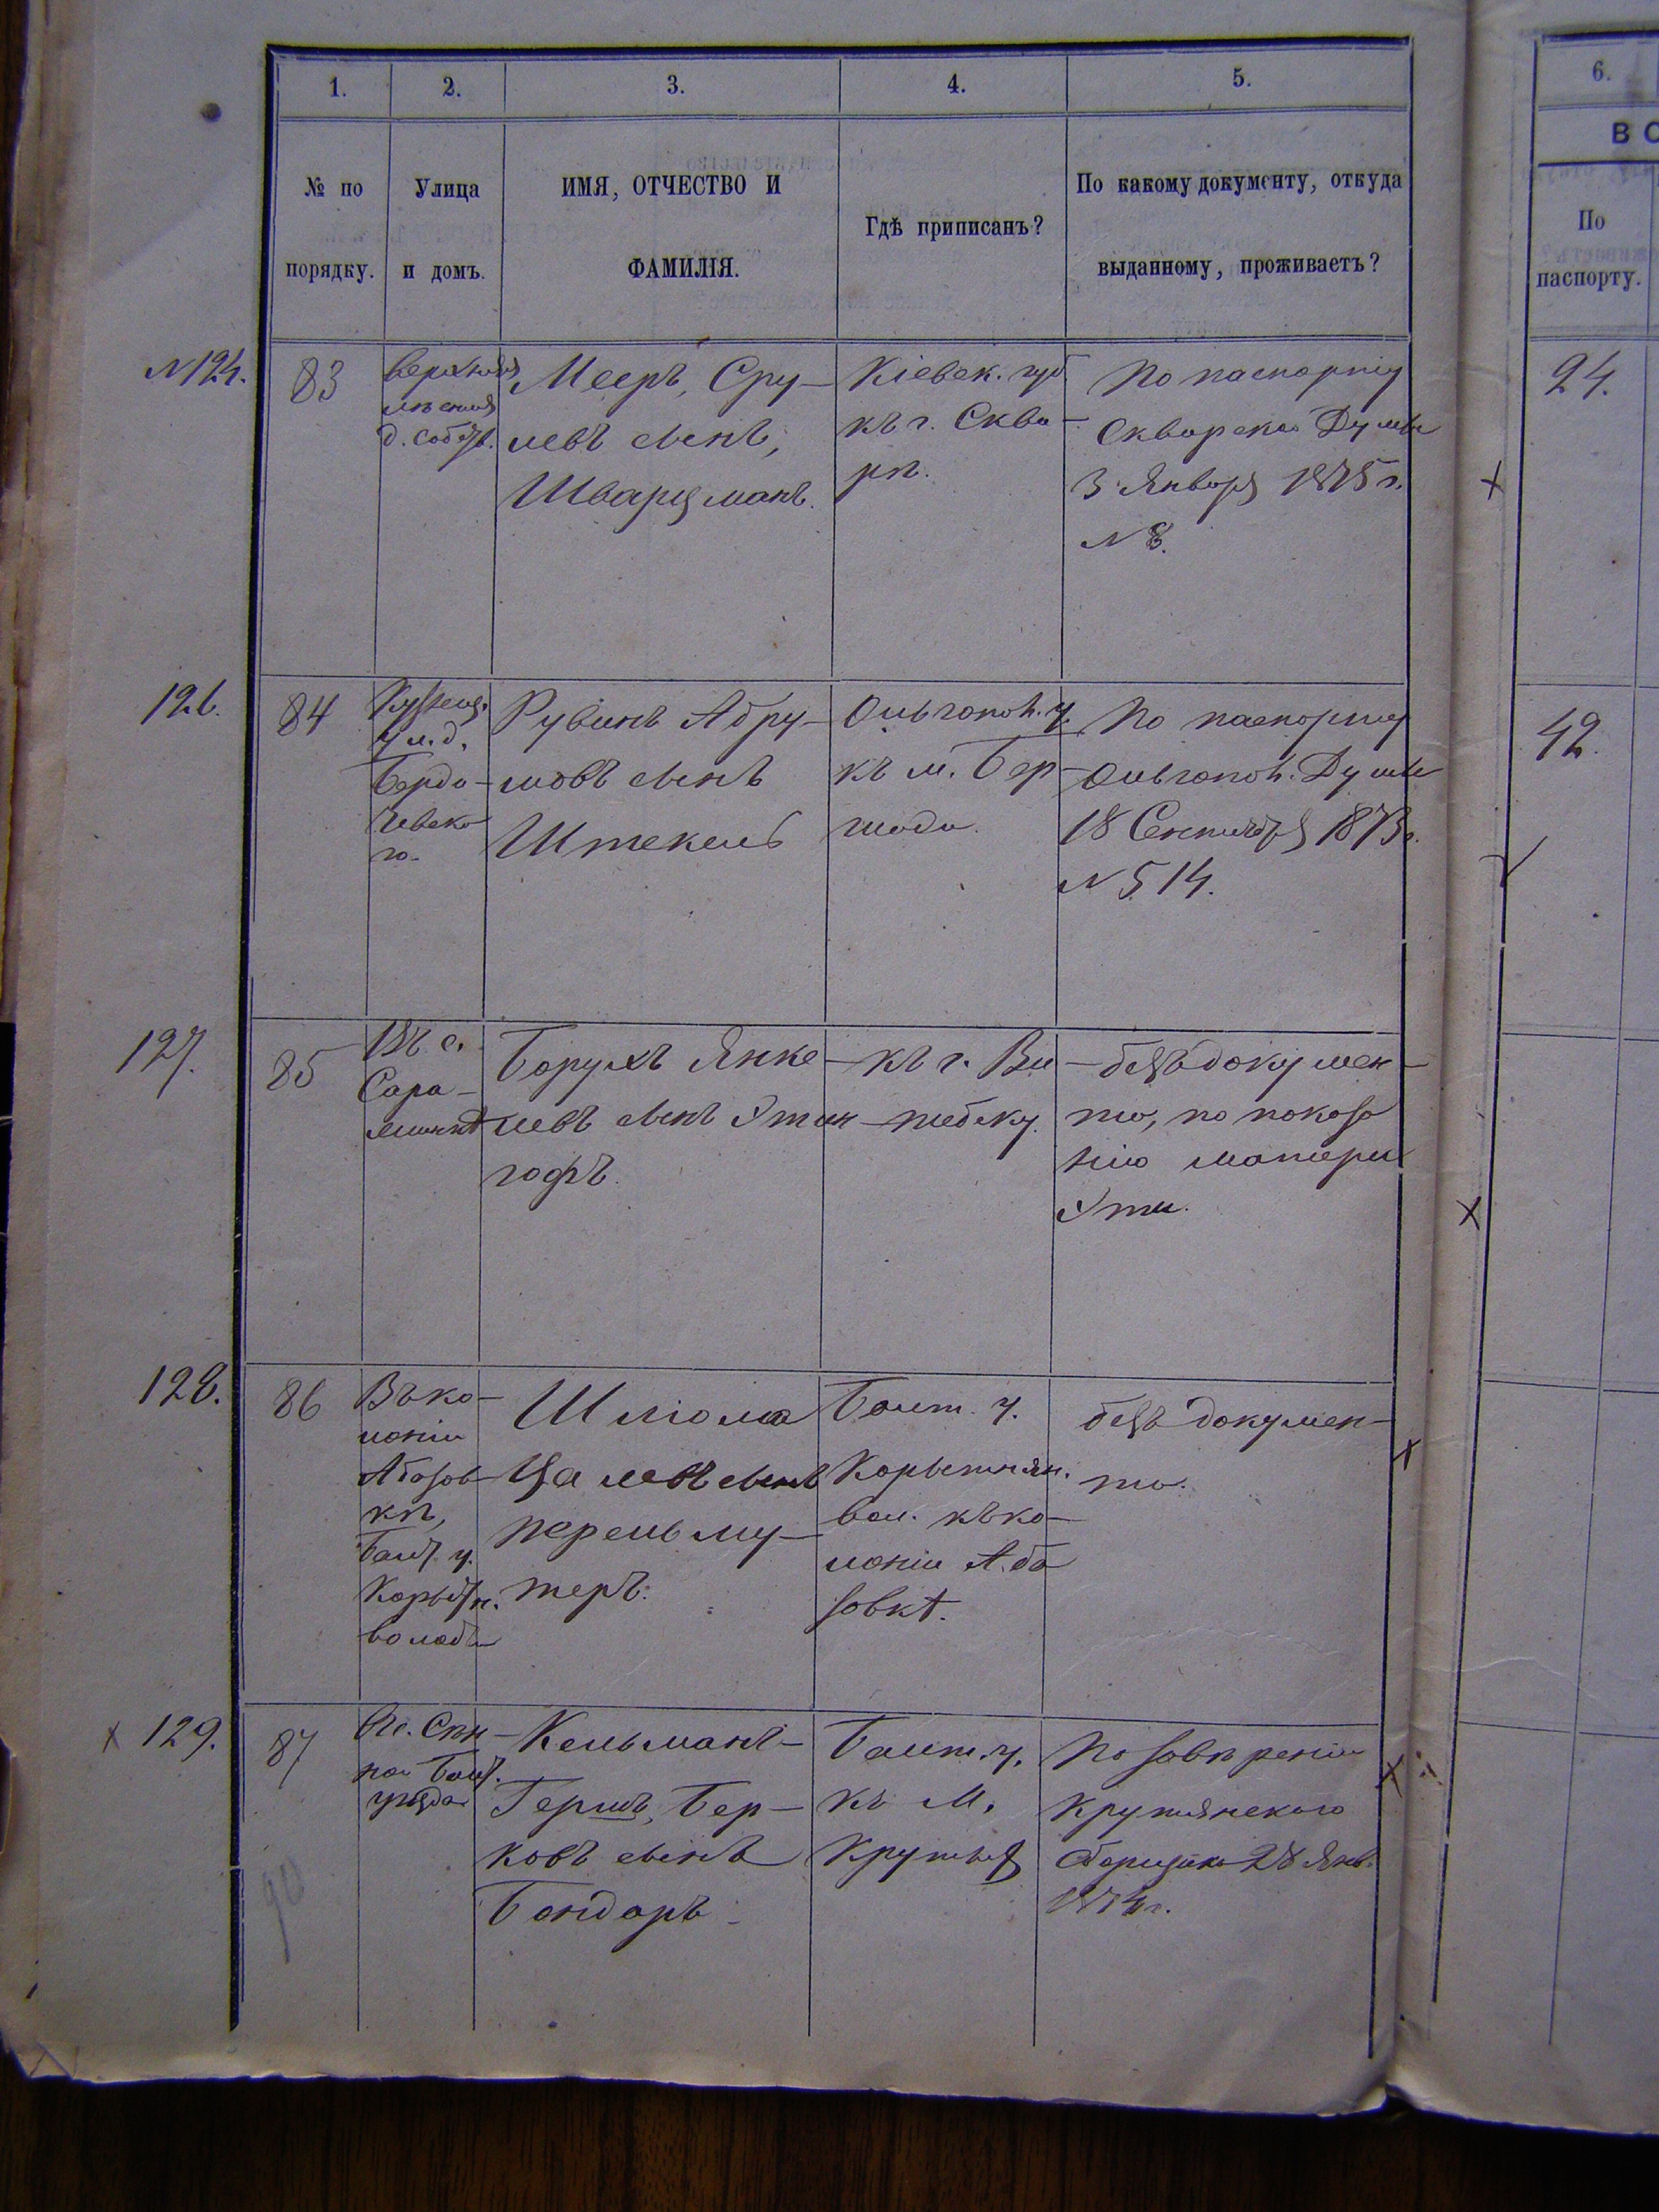 1. 2. 3. 4. 5. 6.
№ по порядку.
Улица и домъ.
ИМЯ, ОТЧЕСТВО И
ФАМИЛІЯ.
Гдѣ приписанъ?
По какому документу, откуда
выданному, проживаетъ?
ВО
По
паспорту.
N 124.
83
Верхняя
д. собств.
Мееръ, Сру-
левъ сынъ,
Шварцманъ.
Кіевск. губ.
къ г. Скви-
рѣ.
По паспорту
Сквирской Думы
3 Января 1875 г.
N 8.
24.
126.
84
Кузнеч.
ул. д.
Берди-
чевско
го.
Рувинъ Абру-
мовъ сынъ
Штекель
Ольгопол. у.
къ м. Бер-
шади.
По паспорту
Ольгопол. Думы
18 Сентября 1873 г.
N 514.
42.
127.
85
Въ с.
Сара-
Борухъ Янке-
левъ сынъ Этин
гофъ.
къ г. Ви-
тебску.
безъ докумен-
та, по показа
нію матери
Эти.
128.
86
Въ ко-
лоніи
Абазов
кѣ,
Балт. у.
Корытн.
волости
Шлiома
Цалевъ сынъ
Перельму-
теръ.
Балт. у.
Корытнян.
вол. къ ко-
лоніи Аба
зовкѣ.
безъ докумен-
та.
x 129.
87
Балт.
уѣзда
Кельманъ-
Гершъ, Бер-
ковъ сынъ
Бондарь
Балт. у.
къ м.
Крутыя
По завѣренію
Крутянского
сборщика 28 Янв.
1874 г.
90